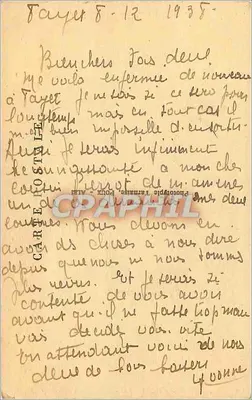 Fayet 8-12 1938-
Bien chers tous deux
Me voilà enfermée de nouveau
à Fayet je ne sais si ce sera pour
longtemps mais en tout cas il
m'est bien impossible d'en sortir
Aussi je serais infiniment
reconnaissante à mon cher
cousin de m'amener
un mes deux
cousines. Nous devons en
avoir des choses à nous dire
depuis que nous ne nous sommes
plus revus. Et je serais si
contente de vous avoir
avant qu'il ne fasse trop mauvais
décidez vous vite
En attendant voici de nous
deux de bons baisers
Yvonne
CARTE POSTALE
CPARHIL